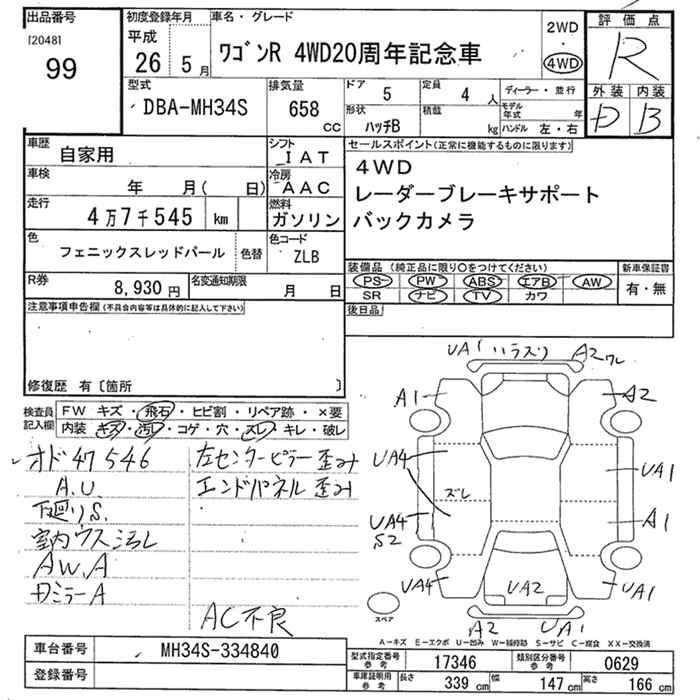 出品番号
[2048]
99
初度登録年月
平成
26 5月
車名・グレード
ワゴンR 4WD20周年記念車
2WD
・
4WD
評価点
R
型式
DBA-MH34S
排気量
658
cc
ドア
5
定員
4 人
形状
ハッチB
積載
kg
ディーラー・並行
モデル年式 年
ハンドル 左・右
外装 内装
D B
車歴
自家用
シフト
IAT
車検
年 月( 日)
冷房
AAC
走行
4万7千545 km
燃料
ガソリン
色
フェニックスレッドパール
色替
色コード
ZLB
R券
8,930 円
名変通知期限
月 日
セールスポイント(正常に機能するものに限ります)
4WD
レーダーブレーキサポート
バックカメラ
装備品 (純正品に限り○をつけてください)
PS PW ABS エアB AW
SR ナビ TV カワ
新車保証書
有・無
後日品
注意事項申告欄(不具合内容等は具体的に記入して下さい)
修復歴 有〔箇所 〕
検査員
記入欄
FW キズ・飛石・ヒビ割・リペア跡・×要
内装 キズ・汚れ・コゲ・穴・スレ・キレ・破レ
オド47546
A.U.
下廻りS.
室内ウス汚レ
AW.A
左センターピラー歪み
エンドパネル歪み
AC不良
UA1
A2
A1
A2
UA4
UA1
ズレ
UA4
S2
A1
UA4
UA2
UA1
A2
UA1
スペア
A-キズ E-エクボ U-凹み W-補修跡 S-サビ C-腐食 XX-交換済
車台番号
MH34S-334840
登録番号
型式指定番号
参考
17346
類別区分番号
参考
0629
車庫証明用
参考
長さ
339 cm
幅
147 cm
高さ
166 cm